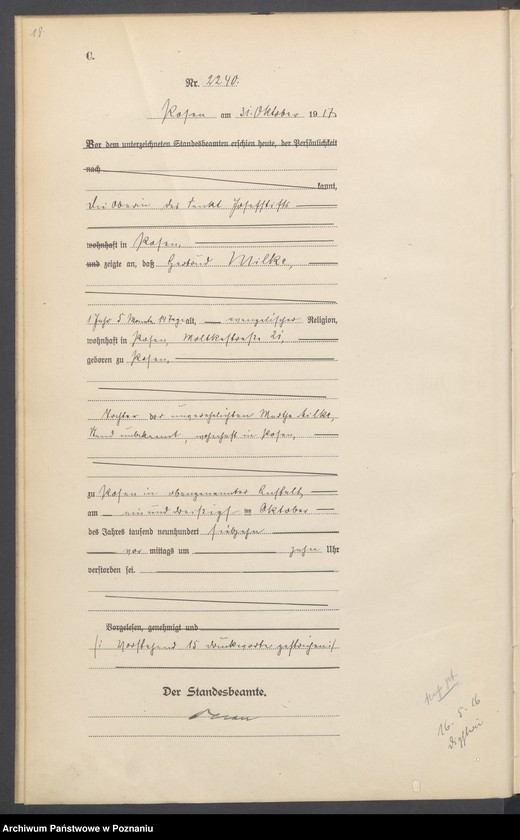 18
C.
Nr. 2240.
Posen am 31. Oktober 1917
Vor dem unterzeichneten Standesbeamten erschien heute, der Persönlichkeit
nach
kannt,
Die Oberin des Sankt Josefstifts
wohnhaft in Posen,
und zeigte an, daß Gertrud Wilke,
1 Jahr 5 Monate Tage alt, evangelischer Religion,
wohnhaft in Posen, Moltkestraße 21,
geboren zu Posen,
Tochter der unverehelichten Martha Wilke,
Stand unbekannt, wohnhaft in Posen,
zu Posen in obengenannter Anstalt,
am einunddreißigsten Oktober
des Jahres tausend neunhundert siebzehn
vor mittags um zehn Uhr
verstorben sei.
Vorgelesen, genehmigt und
(: Vorstehend 15 Druckworte gestrichen :)
Der Standesbeamte.
16. 5. 16
Archiwum Państwowe w Poznaniu